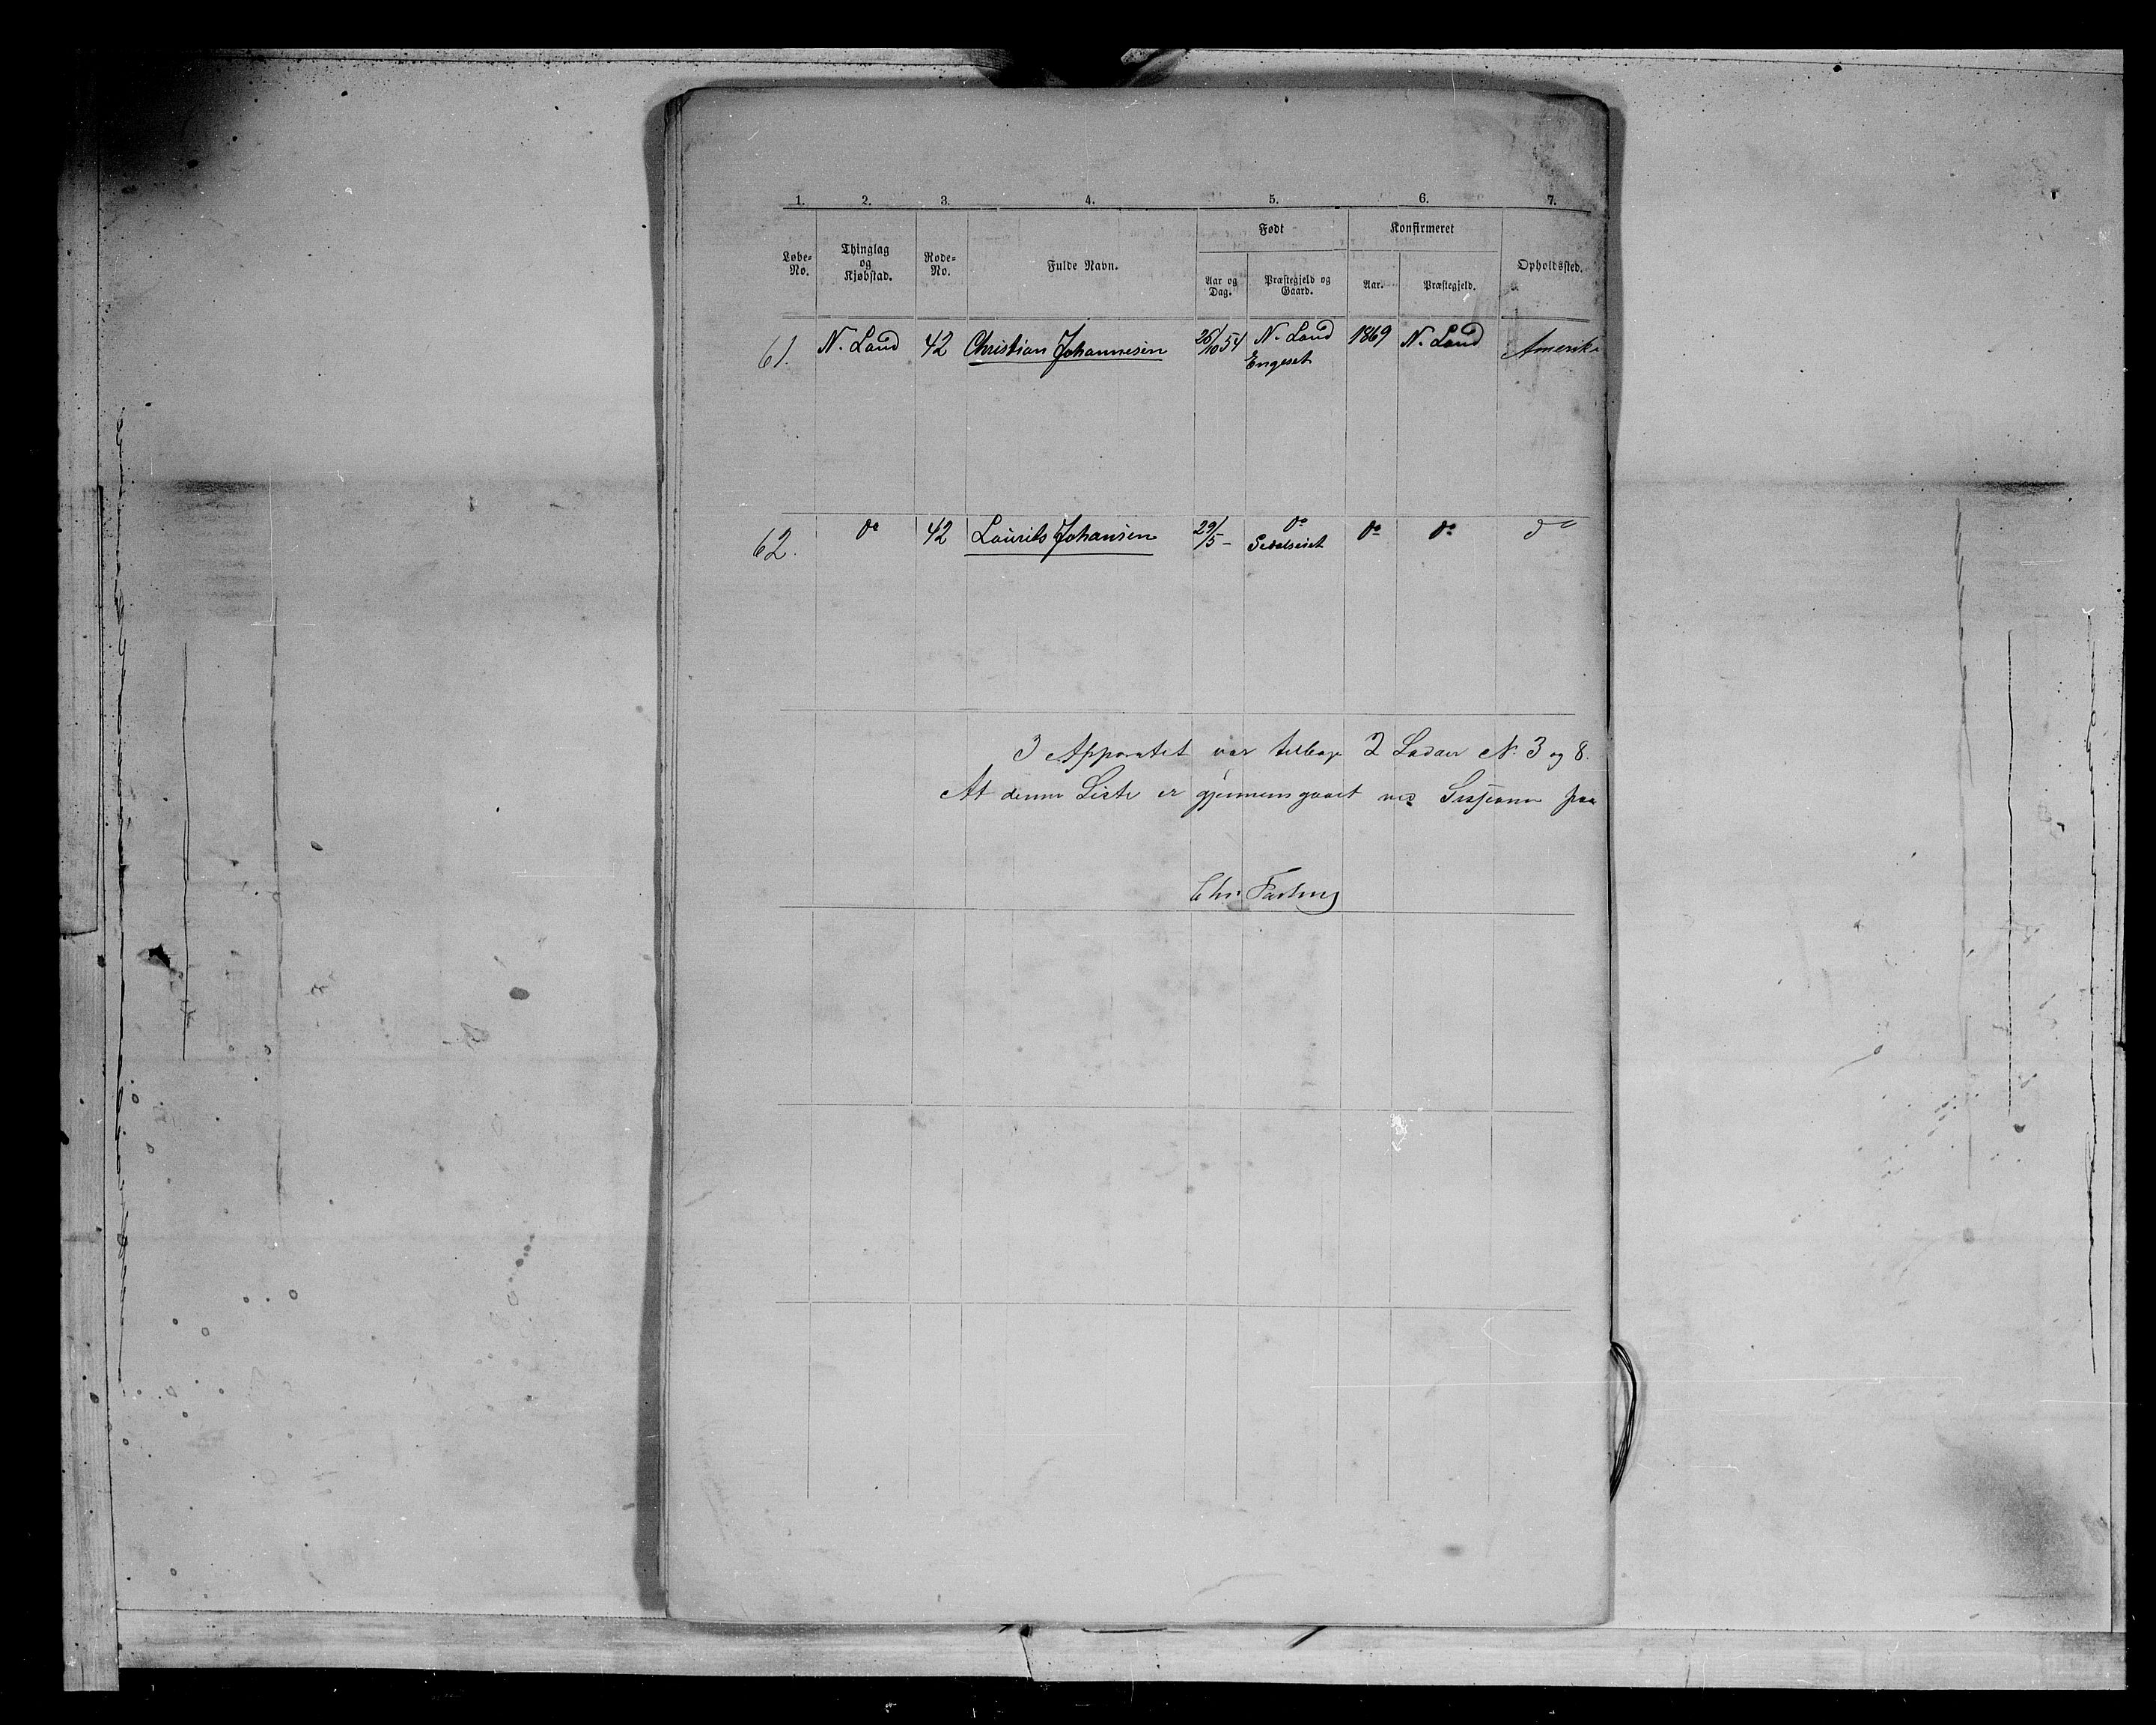 1. 2. 3. 4. 5. 6. 7.
Løbe-No. Thinglag og Kjøbstad. Rode-No. Fulde Navn. Født Konfirmeret Opholdssted.
Aar og Dag. Præstegjeld og Gaard. Aar. Præstegjeld.
61. N. Land 42 Christian Johannesen 26/10 54 N. Land 1869 N. Land Amerika
Engeset
62. do 42 Laurits Johansen 29/5 - do do do do
I Apparatet var tilbage 2 Lodder N. 3 og 8.
At denne Liste er gjennemgaaet ved Sessionen paa
Chr.